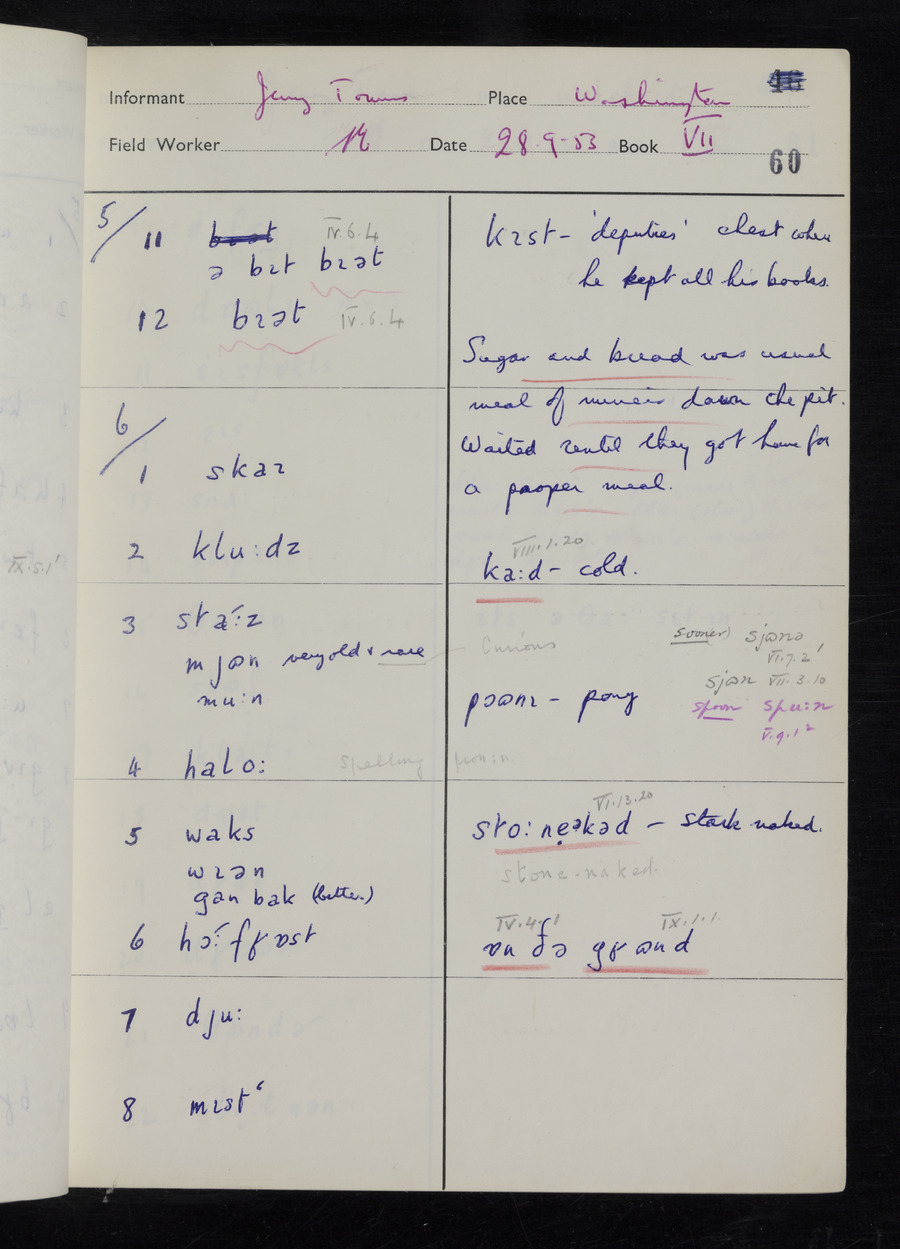 Informant Jerry Towns Place Washington
Field Worker Date 28-9-53 Book VII
60
5/ 11 IV.6.4
ə bɪt bɪət
12 bɪət IV.6.4
6/
1 skaɪ
2 klu:dz
3 sta:z
mjɵn very old & rare
mu:n
4 halo: Spelling
5 waks
wɪən
gan bak (better)
6 hɔ:fʁɒst
7 dju:
8 mɪst
kɪst – 'deputies' chest where
he kept all his books.
Sugar and bread was usual
meal of miners down the pit.
Waited until they got home for
a proper meal.
VIII.1.20
ka:d – cold.
Curious
sooner) sjɵnə
VI.7.2
sjɵn VII.3.10
spoon spu:n
V.9.1
pɔɵnɪ – pony
VI.13.20
sto:neəkəd – stark naked.
stone-naked.
IV.4.1 IX.1.1.
ɒn ðə gʁɵnd
IX.5.1